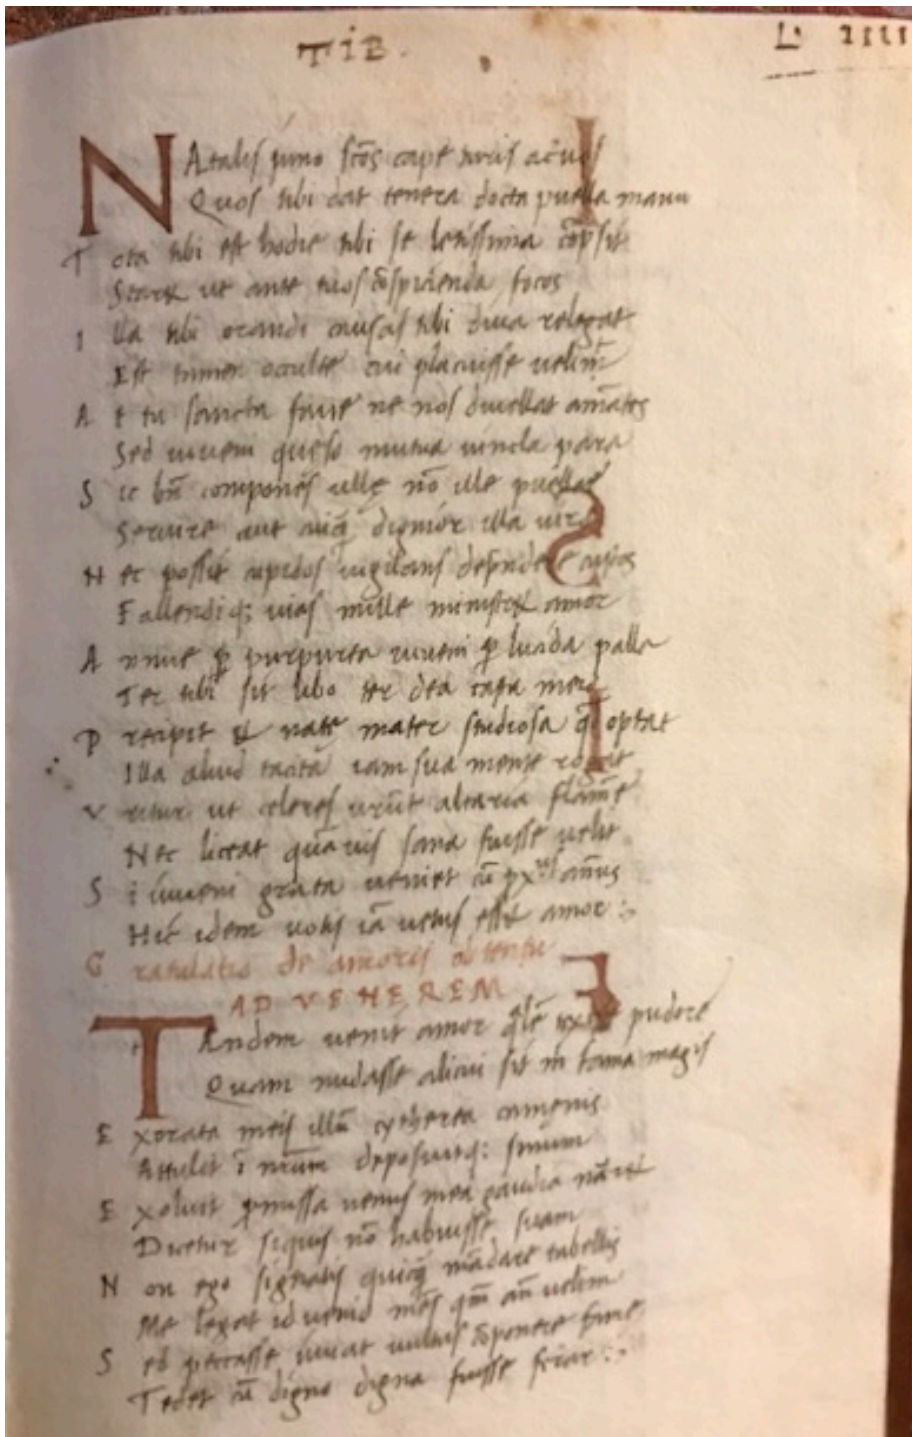 TIB.
L. IIII
NAtalis juno sctos cape turis aceruos
Quos tibi dat tenera docta puella manu
Tota tibi est hodie tibi se letissima cōpsit
Staret ut ante tuos cōspicienda focos
Illa tibi orandi causas tibi diua relegat
Est tamen occulte cui placuisse uelit
At tu sancta faue ne nos diuellat amātes
Sed iuueni queso mutua uincla para
Sic bn̄ compones ulle nō ille puellae
Seruire aut cuiq̄ dignior illa uiro
Nec possit cupidos uigilans deprēdere custos
Fallendiq; uias mille ministret amor
Annue purpurea iuueni lucida palla
Ter tibi fit libo ter dea casta mero
Precipit et nate mater studiosa qd̄ optat
Illa aliud tacita iam sua mente rogat
Vritur ut celeres urūt altaria flāme
Nec liceat quāuis sana fuisse uelit
Si iuueni grata ueniet cū pxīus annus
Hic idem uotis iā uetus esset amor :
Gratulatio de amoris obtentu
AD VENEREM
TAndem uenit amor qlē texisse pudore
Quam nudasse alicui sit m̄ fama magis
Exorata meis illū cytherea camenis
Attulit ī nr̄um deposuitq; sinum
Exoluit promissa uenus mea gaudia narret
Dicetur siquis nō habuisse suam
Non ego signatis quicq̄ mādare tabellis
Me legat id uenio
Sed peccasse iuuat uultus cōponere fame
Tedet cū digno digna fuisse ferar :